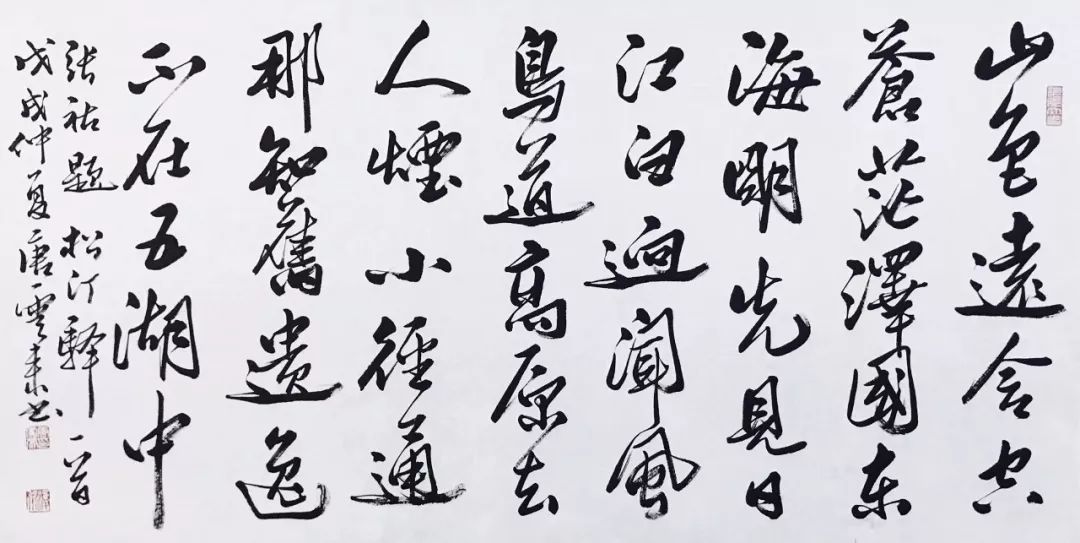 山色遠含空
蒼茫澤國東
海明先見日
江白迥聞風
鳥道高原去
人煙小徑通
那知舊遺逸
不在五湖中
張祜題松汀驛一首
戊戌仲夏唐雲來書